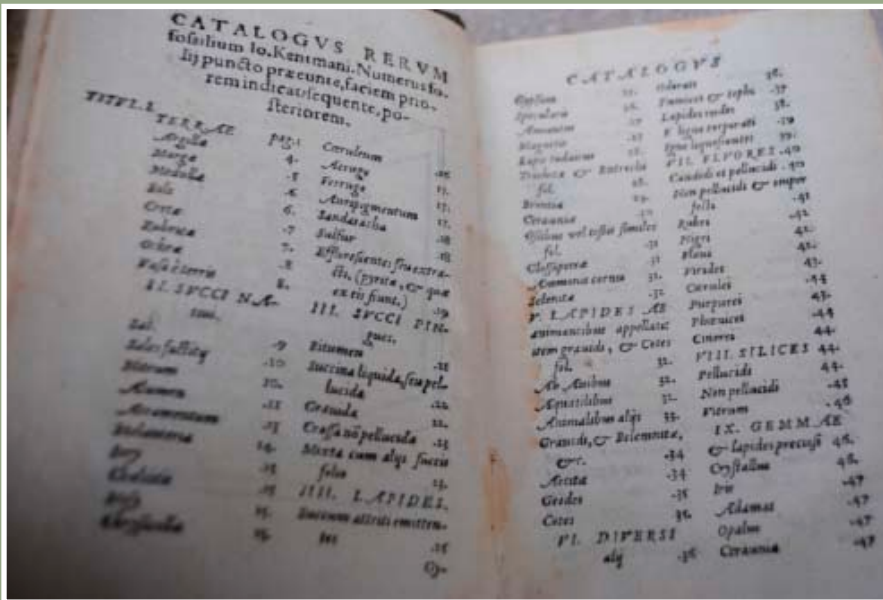 CATALOGVS RERVM
fossilium Io. Kentmani. Numerus fo-
lij puncto præeunte, faciem prio-
rem indicat: sequente, po-
steriorem.
TITVL. I.
TERRAE pag:
Argilla 4.
Marga .5
Medulla .6
Sola 6.
Creta .7
Rubrica 7.
Ochra .8
Vasa è terris 8.
II. SVCCI NA-
tiui.
Sal. .9
Sales factitij .10
Nitrum 10.
Alumen .12
Atramentum .13
Melanteria 14.
Sory .15
Chalcitis .15
Misy 15.
Chrysocolla 15.
Cæruleum .16
Aerugo 17.
Ferrugo 17.
Auripigmentum 17.
Sandaracha .18
Sulfur .18
Efflorescentes seu extra-
cti, (pyritæ, & quæ
ex eis fiunt.) .19
III. SVCCI PIN-
gues.
Bitumen .21
Succina liquida, seu pel-
lucida .22
Grauida 22.
Crassa nō pellucida .23
Mixta cum alijs succis
folio 23.
IIII. LAPIDES.
Succum attritu emitten-
tes .25
Gy-
CATALOGVS
Gypsum
Specularis
Amiantus
Magnetis
Lapis Iudaicus 28.
Trochitæ & Entrochi
fol. 28.
Brontia 29.
Ceraunia
Ossibus vel testis similes
fol. .31
Glossipetræ .31
Ammonis cornu 31.
Selenitæ .32
V. LAPIDES AB
animantibus appellati:
item grauidi, & Cotes
fol. 32.
Ab Auibus 32.
Aquatilibus 32.
Animalibus alijs 33.
Grauidi, & Belemnitæ,
&c. .34
Aetitæ .34
Geodes .35
Cotes 36.
VI. DIVERSI
alij .36
Odorati 36.
Pumices & tophi .37
Lapides rudes 38.
E ligno corporati .39
Igne liquescentes 39.
VII. FLVORES .40
Candidi et pellucidi .40
Non pellucidi & imper
fecti .41
Rubri .42
Nigri 42.
Flaui 42.
Virides 43.
Cærulei .44
Purpurei 43.
Phœnicei 43.
Cinerei 44.
VIII. SILICES 44.
Pellucidi 44.
Non pellucidi .45
Vitrum .46
IX. GEMMAE
& lapides preciosi 46.
Crystallus 46.
Iris .47
Adamas .47
Opalus .47
Ceraunia .47